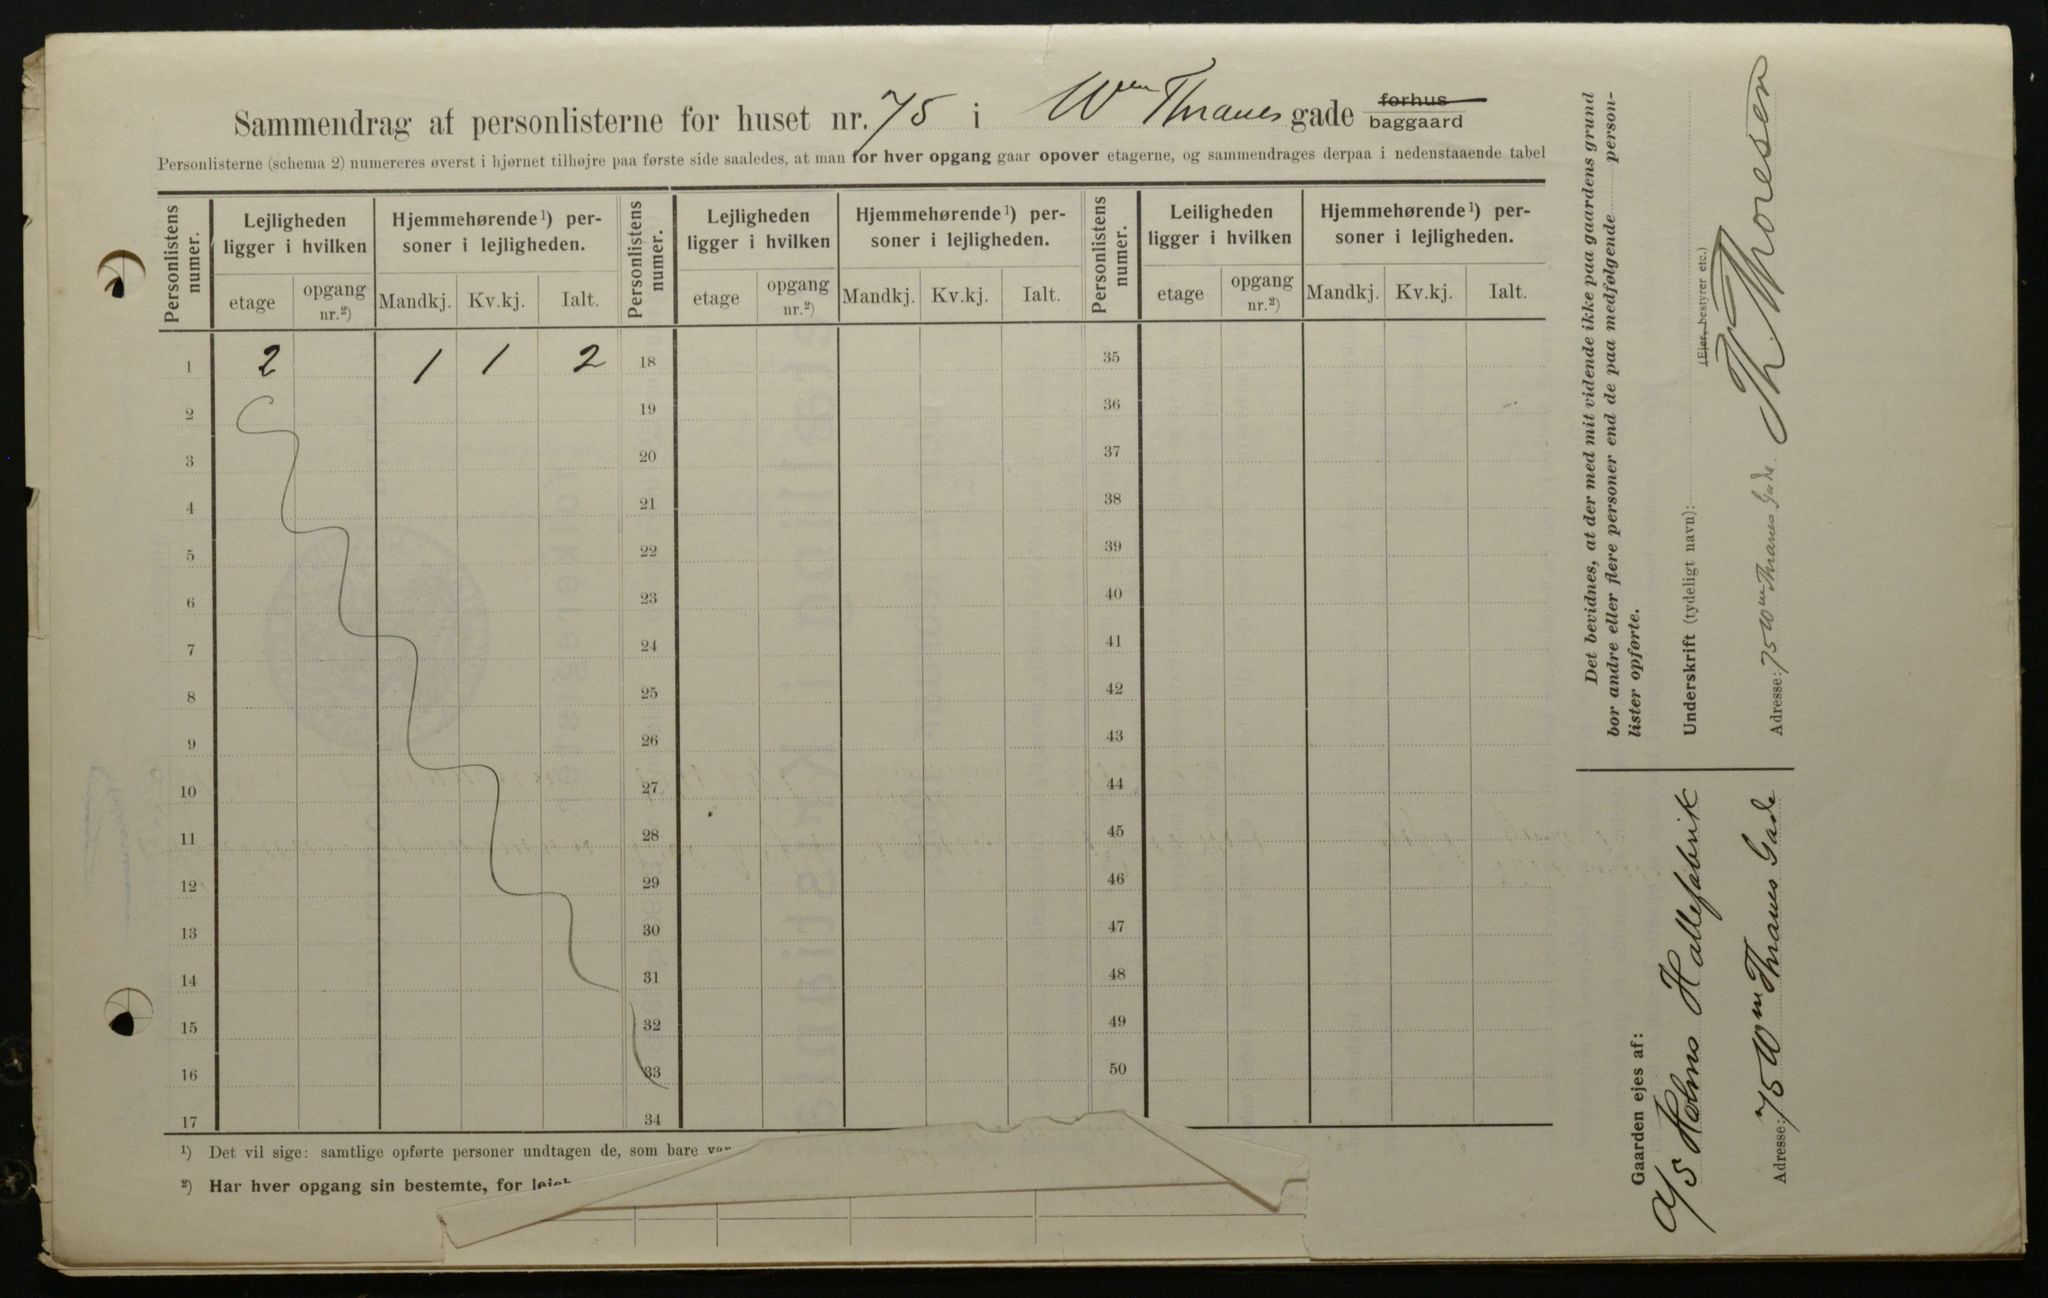 Sammendrag af personlisterne for huset nr. 75 i Wm Thranes gade forhus baggaard
Personlisterne (schema 2) numereres øverst i hjørnet tilhøjre paa første side saaledes, at man for hver opgang gaar opover etagerne, og sammendrages derpaa i nedenstaaende tabel
Personlistens numer. Lejligheden ligger i hvilken Hjemmehørende¹) personer i lejligheden. Personlistens numer. Lejligheden ligger i hvilken Hjemmehørende¹) personer i lejligheden. Personlistens numer. Leiligheden ligger i hvilken Hjemmehørende¹) personer i lejligheden.
etage opgang nr.²) Mandkj. Kv.kj. Ialt. etage opgang nr.²) Mandkj. Kv.kj. Ialt. etage opgang nr.²) Mandkj. Kv.kj. Ialt.
1 2 1 1 2 18 35
2 19 36
3 20 37
4 21 38
5 22 39
6 23 40
7 24 41
8 25 42
9 26 43
10 27 44
11 28 45
12 29 46
13 30 47
14 31 48
15 32 49
16 33 50
17 34
¹) Det vil sige: samtlige opførte personer undtagen de, som bare var
²) Har hver opgang sin bestemte, for
Det bevidnes, at der med mit vidende ikke paa gaardens grund
bor andre eller flere personer end de paa medfølgende person-
lister opførte.
Underskrift (tydeligt navn):
(Ejer, bestyrer etc.)
Th. Thoresen
Adresse: 75 Wm Thranes Gade.
Gaarden ejes af:
A/S Holms Hallefabrik
Adresse: 75 Wm Thranes Gade